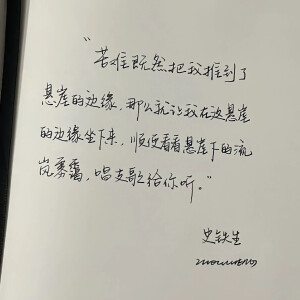 “苦难既然把我推到了
悬崖的边缘，那么就让我在这悬崖
的边缘坐下来，顺便看看悬崖下的流
岚雾霭，唱支歌给你听。”
史铁生